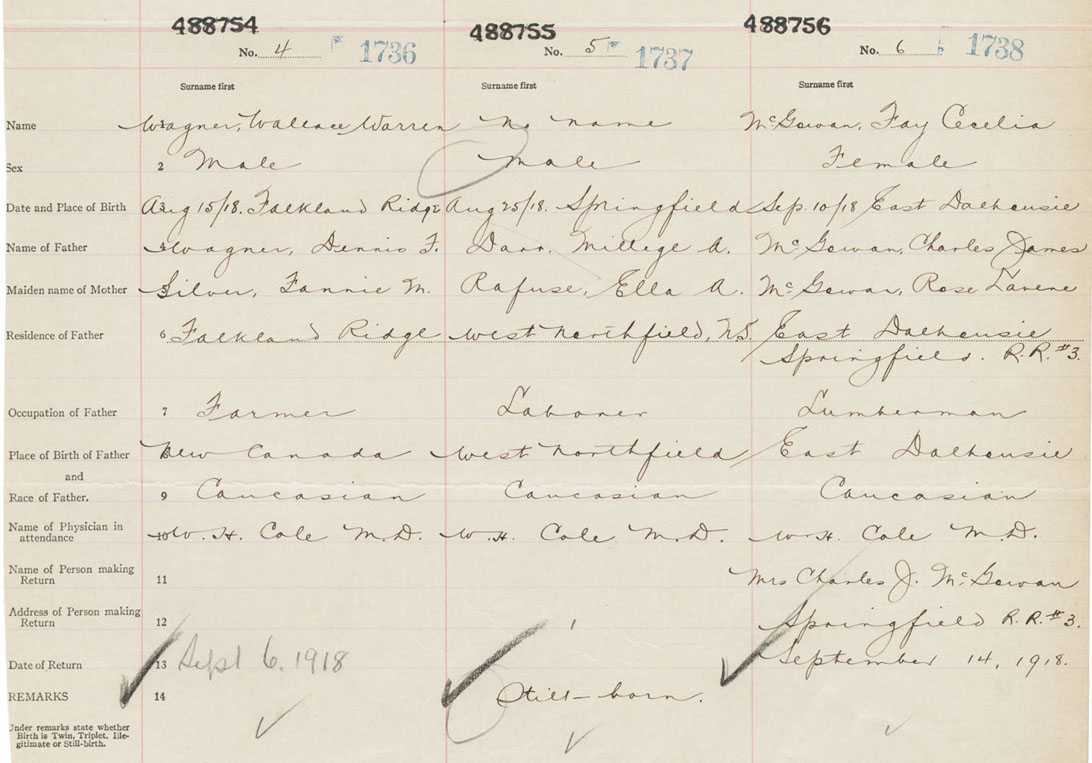 488754 488755 488756
No. 4 1736 No. 5 1737 No. 6 1738
Surname first Surname first Surname first
Name 1 Wagner, Wallace Warren No name McGowan, Fay Cecelia
Sex 2 Male Male Female
Date and Place of Birth 3 Aug 15/18. Falkland Ridge Aug 25/18. Springfield Sep. 10/18 East Dalhousie
Name of Father 4 Wagner, Dennis F. Darr. Millege A. McGowan, Charles James
Maiden name of Mother 5 Silver, Fannie M. Rafuse, Ella A. McGowan, Rose Lavene
Residence of Father 6 Falkland Ridge West Northfield, N.S. East Dalhousie
Springfield. R.R. #3.
Occupation of Father 7 Farmer Laborer Lumberman
Place of Birth of Father 8 New Canada West Northfield East Dalhousie
and
Race of Father. 9 Caucasian Caucasian Caucasian
Name of Physician in
attendance 10 W. H. Cole M.D. W. H. Cole M.D. W. H. Cole M.D.
Name of Person making
Return 11 Mrs Charles J. McGowan
Address of Person making
Return 12 Springfield R.R. #3.
Date of Return 13 Sept 6. 1918 September 14, 1918.
REMARKS 14 Still-born.
Under remarks state whether
Birth is Twin, Triplet, Ille-
gitimate or Still-birth.